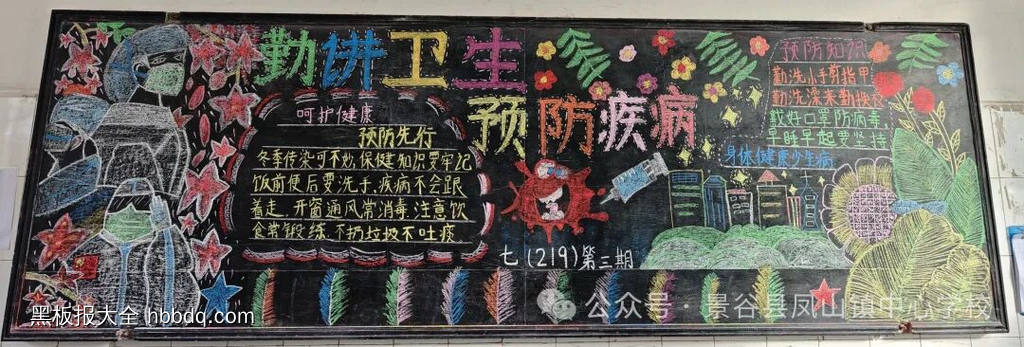 勤讲卫生
预防疾病
呵护健康
预防先行
冬季传染可不少,保健知识要牢记
饭前便后要洗手,疾病不会跟
着走.开窗通风常消毒,注意饮
食常锻练.不扔垃圾不吐痰
预防知识
勤洗小手剪指甲
勤洗澡来勤换衣
戴好口罩防病毒
早睡早起要坚持
身体健康少生病
七(219)第三期
黑板报大全 hbbdq.com
公众号·景谷县凤山镇中心学校